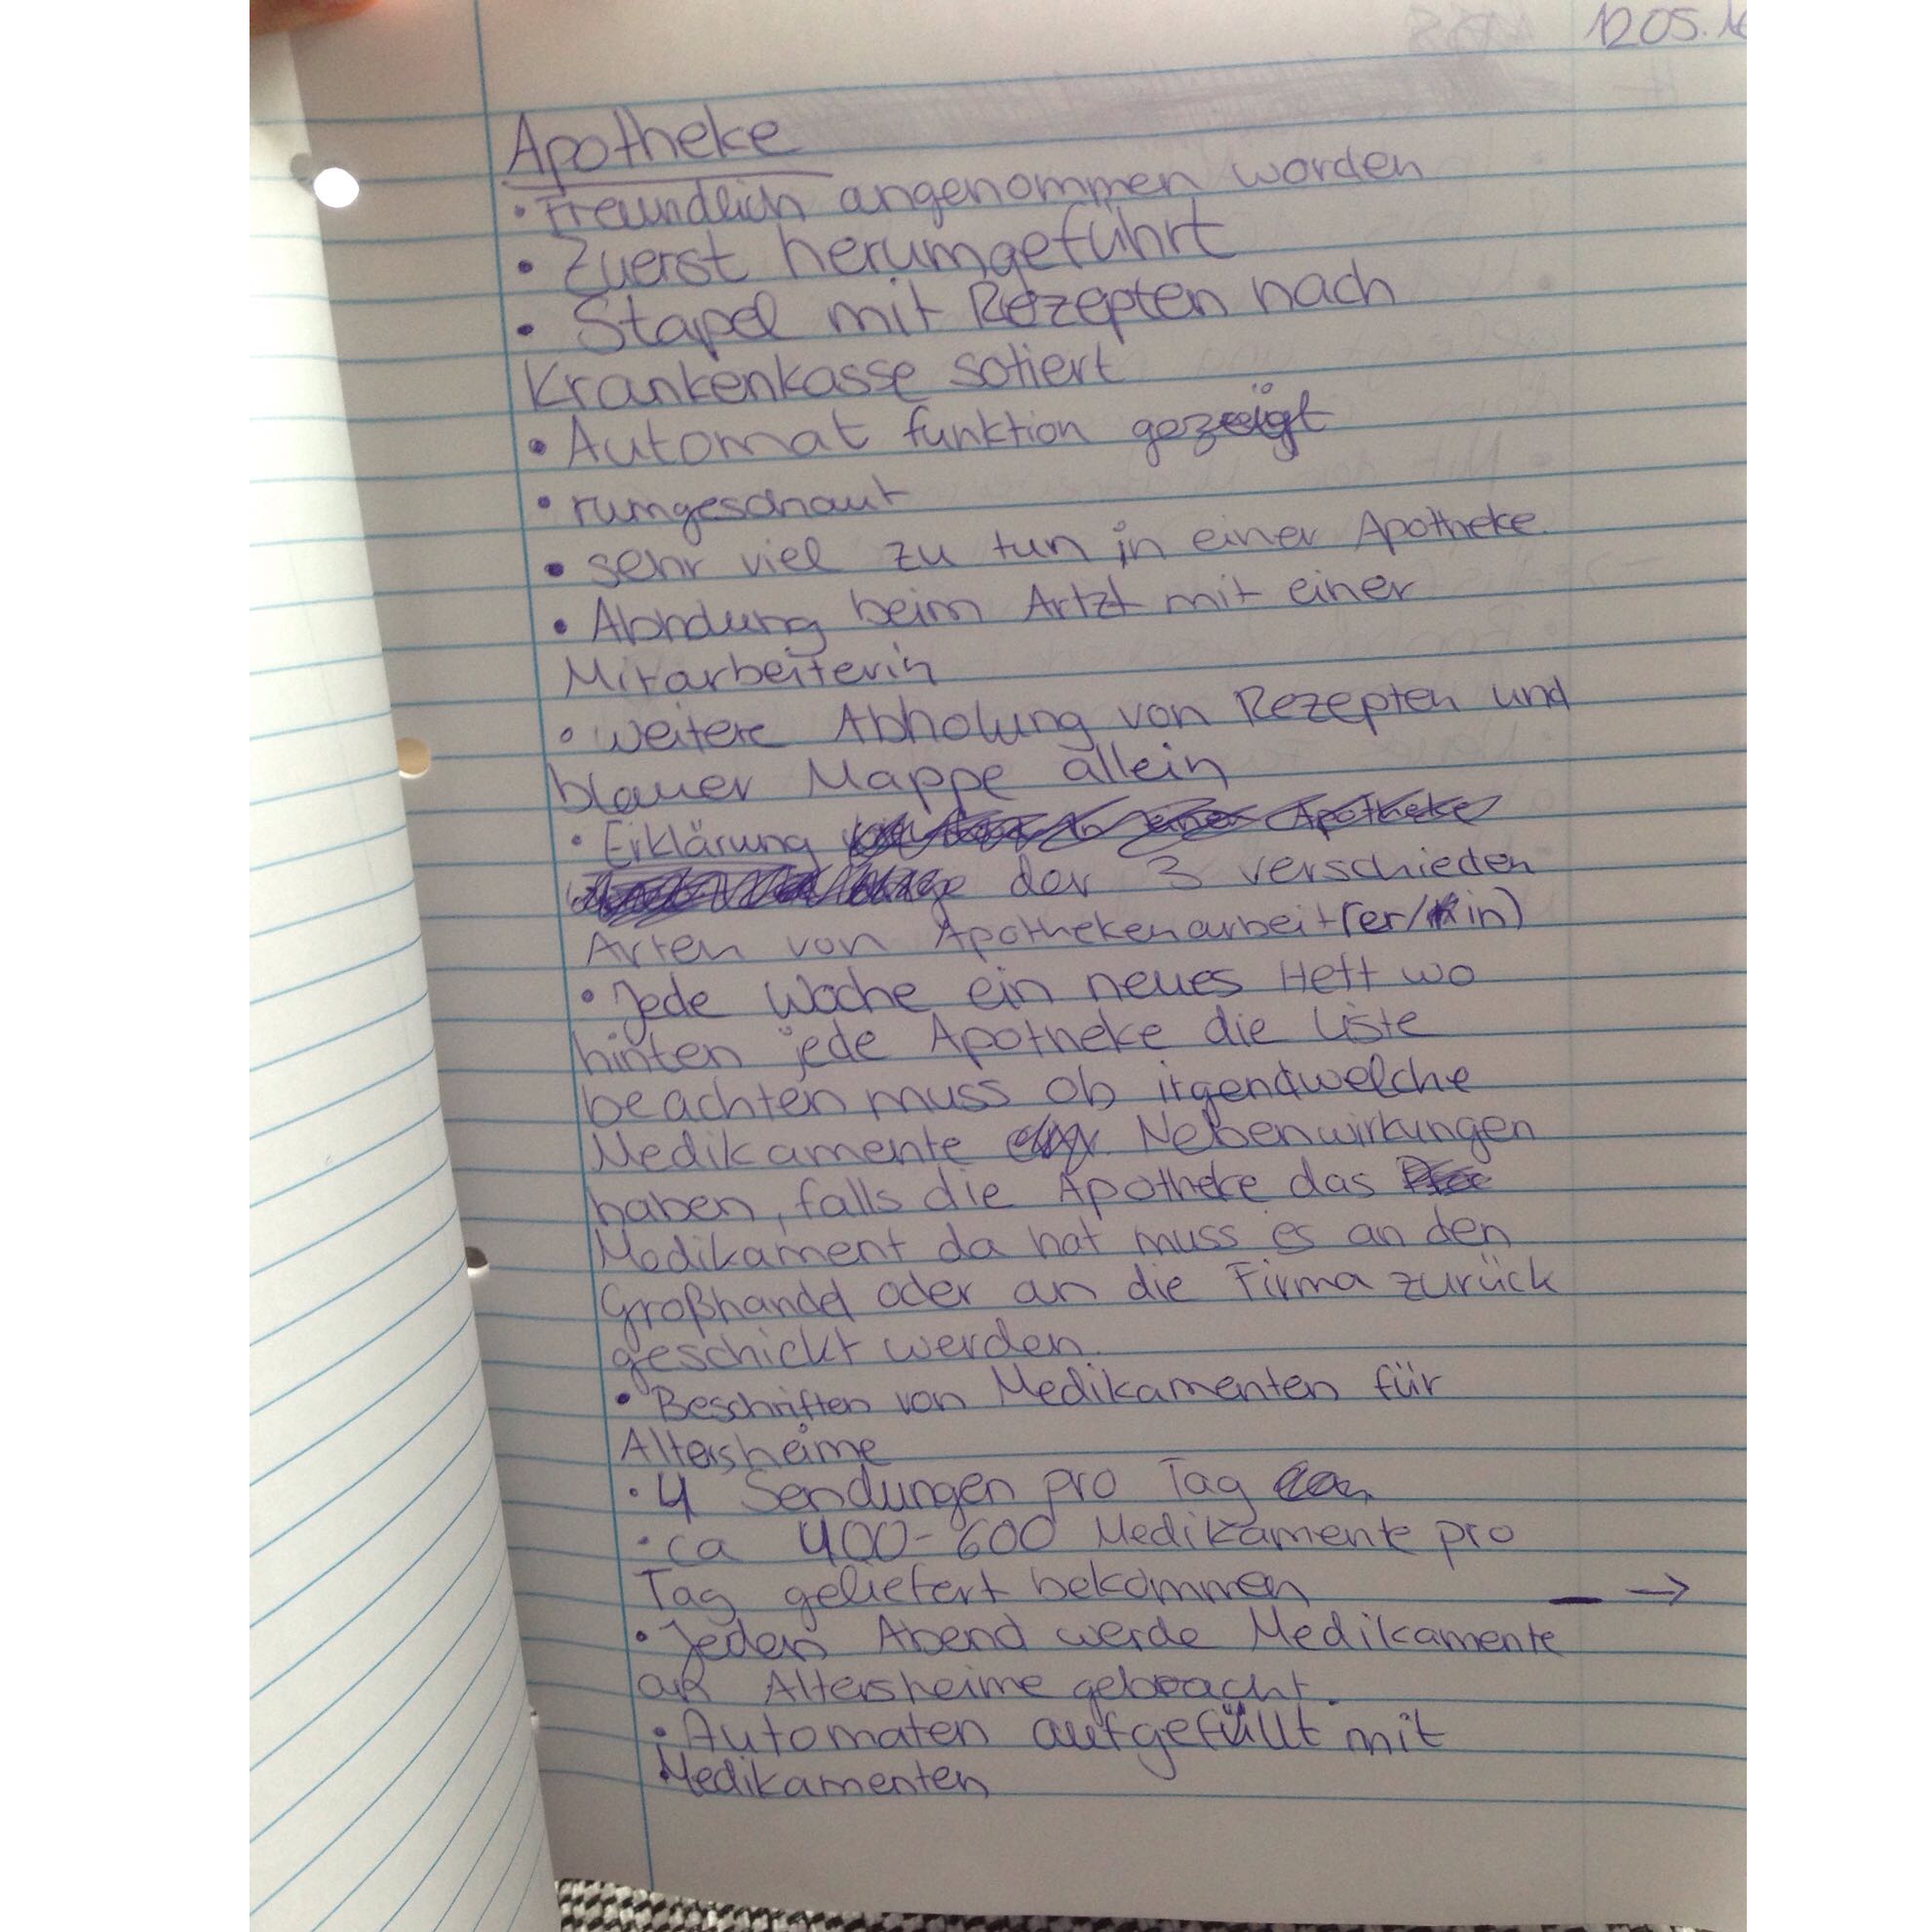 12.05.16
Apotheke
• Freundlich angenommen worden
• Zuerst herumgeführt
• Stapel mit Rezepten nach
Krankenkasse sotiert
• Automat funktion gezeigt
• rumgeschaut
• sehr viel zu tun in einer Apotheke.
• Abholung beim Artzt mit einer
Mitarbeiterin
• weitere Abholung von Rezepten und
blauer Mappe allein
• Erklärung
der 3 verschieden
Arten von Apothekenarbeit(er/in)
• Jede Woche ein neues Heft wo
hinten jede Apotheke die Liste
beachten muss ob irgendwelche
Medikamente Nebenwirkungen
haben, falls die Apotheke das
Medikament da hat muss es an den
Großhandel oder an die Firma zurück
geschickt werden.
• Beschriften von Medikamenten für
Altersheime
• 4 Sendungen pro Tag
• ca 400-600 Medikamente pro
Tag geliefert bekommen – →
• Jeden Abend werde Medikamente
an Altersheime gebracht.
• Automaten aufgefüllt mit
Medikamenten